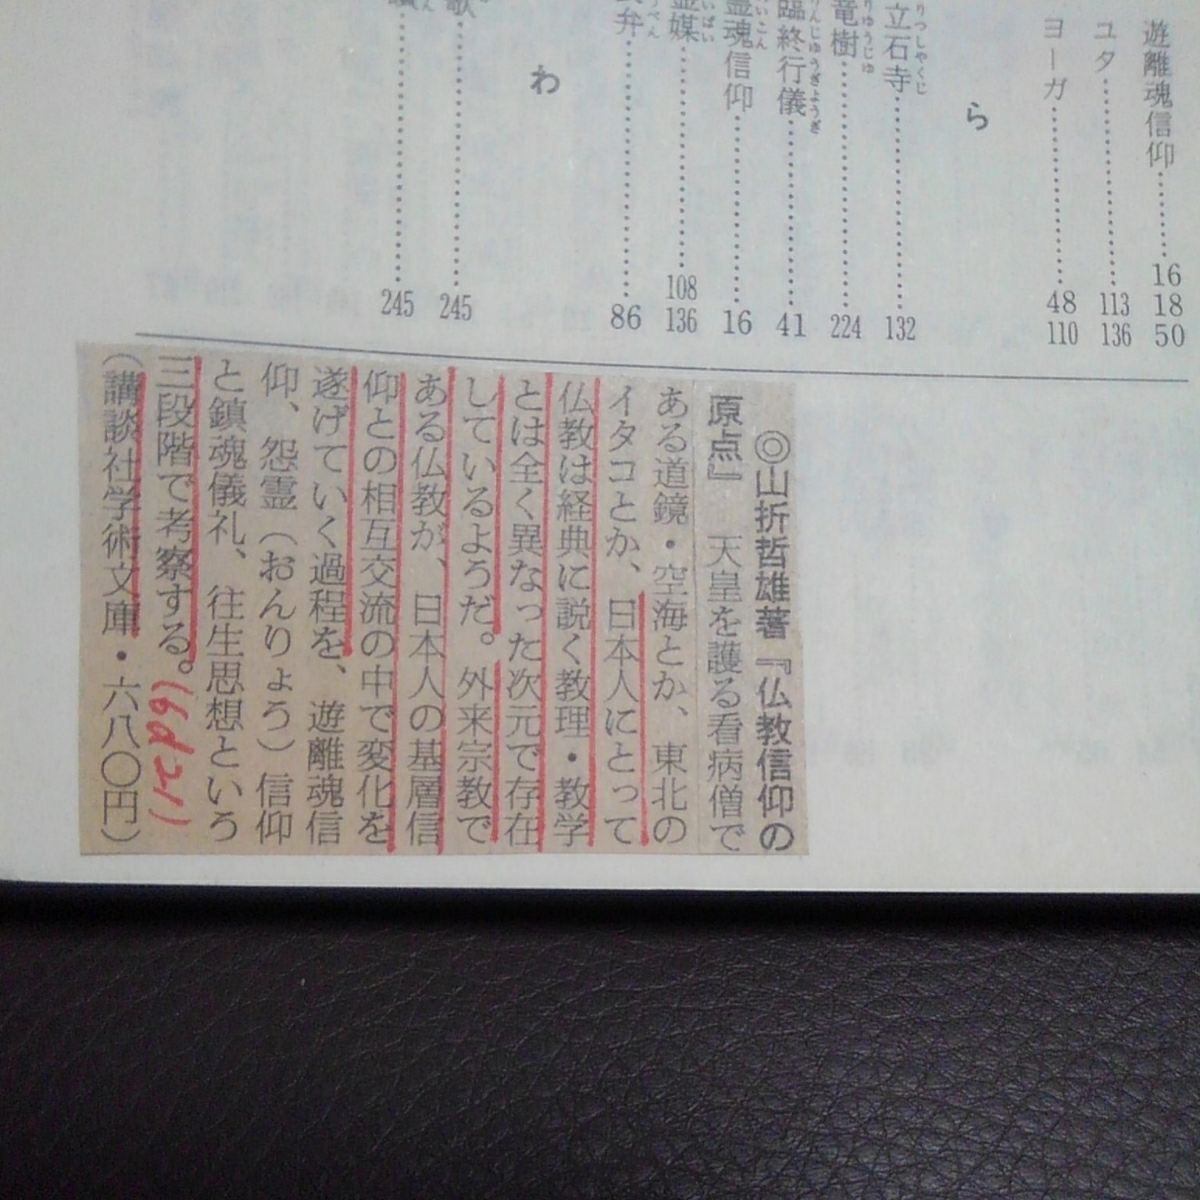 遊離魂信仰……16
18
50
ユタ……113
136
ヨーガ……48
110
ら
立石寺……132
りつしやくじ
竜樹……224
りゆうじゆ
臨終行儀……41
んじゆうぎようぎ
霊魂信仰……16
いこん
霊媒……108
136
いばい
弁……86
べん
わ
歌……245
245
◎山折哲雄著『仏教信仰の
原点』 天皇を護る看病僧で
ある道鏡・空海とか、東北の
イタコとか、日本人にとって
仏教は経典に説く教理・教学
とは全く異なった次元で存在
しているようだ。外来宗教で
ある仏教が、日本人の基層信
仰との相互交流の中で変化を
遂げていく過程を、遊離魂信
仰、怨霊（おんりょう）信仰
と鎮魂儀礼、往生思想という
三段階で考察する。
（講談社学術文庫・六八〇円）